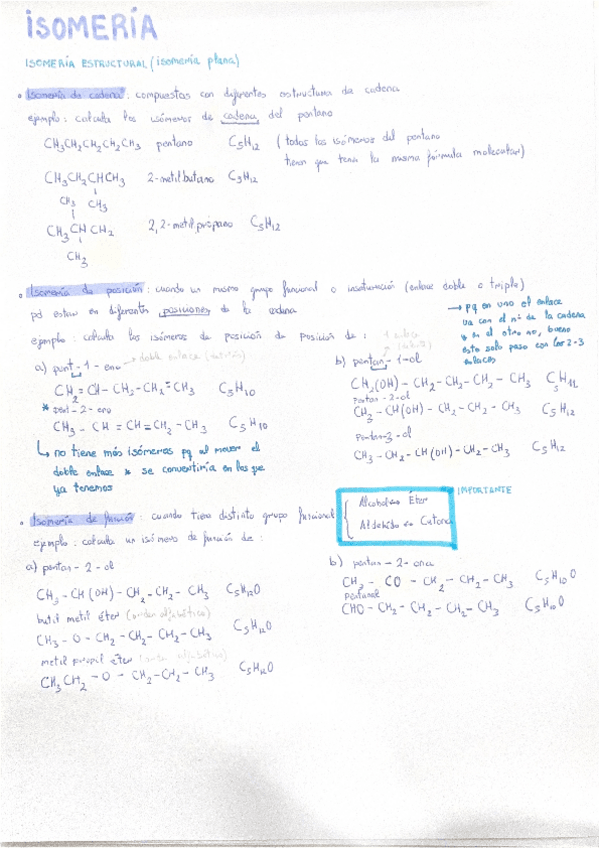 ISOMERÍA
ISOMERÍA ESTRUCTURAL (isomería plana)
• Isomería de cadena: compuestos con diferentes estructura de cadena
ejemplo: calcula los isómeros de cadena del pentano
CH3CH2CH2CH2CH3 pentano C5H12 (todos los isómeros del pentano
tienen que tener la misma fórmula molecular)
CH3CH2CHCH3 2-metilbutano C5H12
CH3
CH3
CH3CHCH2 2,2-metilpropano C5H12
CH3
• Isomería de posición: cuando un mismo grupo funcional o insaturación (enlace doble o triple)
pd estar en diferentes posiciones de la cadena
→ pq en uno el enlace
va con el nº de la cadena
y en el otro no, bueno
esto solo pasa con los 2-3
enlaces
ejemplo: calcula los isómeros de posición de posición de:
a) pent-1-eno → doble enlace
CH2=CH-CH2-CH2-CH3 C5H10
* pent-2-eno
CH3-CH=CH=CH2-CH3 C5H10
↳ no tiene más isómeros pq al mover el
doble enlace * se convertiría en los que
ya tenemos
b) pentan-1-ol
CH2(OH)-CH2-CH2-CH2-CH3 C5H11
Pentan-2-ol
CH3-CH(OH)-CH2-CH2-CH3 C5H12
Pentan-3-ol
CH3-CH2-CH(OH)-CH2-CH3 C5H12
• Isomería de función: cuando tiene distinto grupo funcional
ejemplo: calcula un isómero de función de:
IMPORTANTE
Alcohol ↔ Éter
Aldehído ↔ Cetona
a) pentan-2-ol
CH3-CH(OH)-CH2-CH2-CH3 C5H12O
butil metil éter (orden alfabético)
CH3-O-CH2-CH2-CH2-CH3 C5H12O
metil propil éter (orden alfabético)
CH3CH2-O-CH2-CH2-CH3 C5H12O
b) pentan-2-ona
CH3-CO-CH2-CH2-CH3 C5H10O
pentanal
CHO-CH2-CH2-CH2-CH3 C5H10O